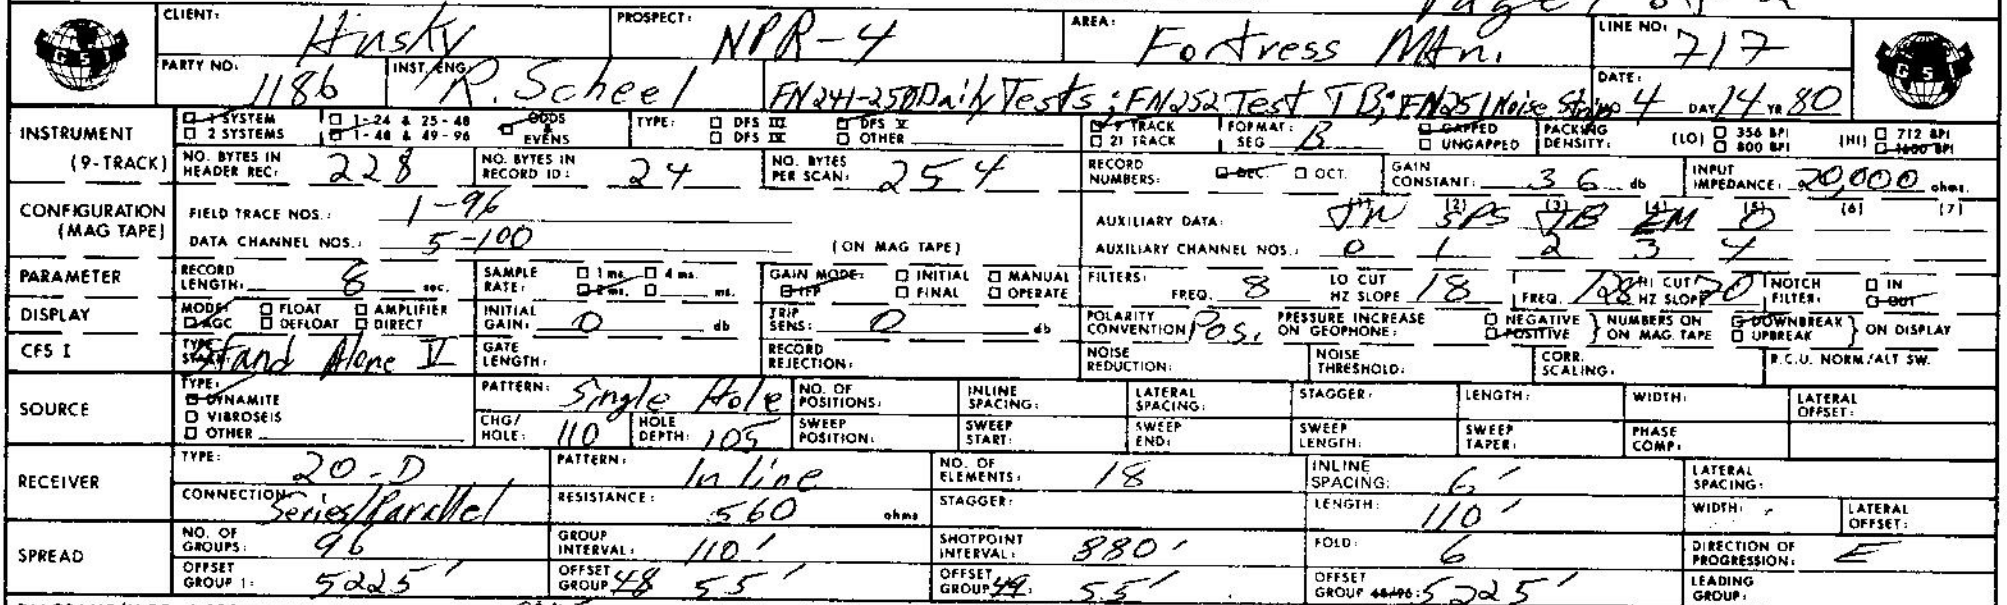 Page 1 of 2
CLIENT: Husky PROSPECT: NPR-4 AREA: Fortress Mtn. LINE NO: 717
GSI
GSI
PARTY NO: 1186 INST. ENG: R. Scheel FN241-250 Daily Tests; FN252 Test TB; FN251 Noise Strip DATE: 4 DAY 14 YR 80
INSTRUMENT (9-TRACK)
1 SYSTEM 1-24 & 25-48 ODDS & EVENS TYPE: DFS III DFS V 9 TRACK FORMAT: SEG B GAPPED PACKING DENSITY: (LO) 356 BPI (HI) 712 BPI
2 SYSTEMS 1-48 & 49-96 DFS IV OTHER 21 TRACK UNGAPPED 800 BPI 1600 BPI
NO. BYTES IN HEADER REC: 228 NO. BYTES IN RECORD ID: 24 NO. BYTES PER SCAN: 254 RECORD NUMBERS: DEC. OCT. GAIN CONSTANT: 36 db INPUT IMPEDANCE: 20,000 ohms.
CONFIGURATION (MAG TAPE)
FIELD TRACE NOS.: 1-96 AUXILIARY DATA: (1) TW (2) SPS (3) TB (4) EM (5) 0 (6) (7)
DATA CHANNEL NOS.: 5-100 (ON MAG TAPE) AUXILIARY CHANNEL NOS.: 0 1 2 3 4
PARAMETER RECORD LENGTH: 8 sec. SAMPLE RATE: 1 ms. 4 ms. 2 ms. ms. GAIN MODE: INITIAL MANUAL IFP FINAL OPERATE FILTERS: FREQ. 8 LO CUT HZ SLOPE 18 FREQ. 128 HI CUT HZ SLOPE 70 NOTCH FILTER: IN OUT
DISPLAY MODE: FLOAT AMPLIFIER AGC DEFLOAT DIRECT INITIAL GAIN: 0 db TRIP SENS: 0 db POLARITY CONVENTION Pos. PRESSURE INCREASE ON GEOPHONE: NEGATIVE POSITIVE NUMBERS ON MAG. TAPE DOWNBREAK UPBREAK ON DISPLAY
CFS I TYPE Stand Alone V GATE LENGTH: RECORD REJECTION: NOISE REDUCTION: NOISE THRESHOLD: CORR. SCALING: R.C.U. NORM/ALT SW.
SOURCE TYPE: DYNAMITE VIBROSEIS OTHER
PATTERN: Single Hole NO. OF POSITIONS: INLINE SPACING: LATERAL SPACING: STAGGER: LENGTH: WIDTH: LATERAL OFFSET:
CHG/HOLE: 110 HOLE DEPTH: 105 SWEEP POSITION: SWEEP START: SWEEP END: SWEEP LENGTH: SWEEP TAPER: PHASE COMP:
RECEIVER TYPE: 20-D PATTERN: In line NO. OF ELEMENTS: 18 INLINE SPACING: 6' LATERAL SPACING:
CONNECTION Series/Parallel RESISTANCE: 560 ohms STAGGER: LENGTH: 110' WIDTH: LATERAL OFFSET:
SPREAD NO. OF GROUPS: 96 GROUP INTERVAL: 110' SHOTPOINT INTERVAL: 880' FOLD: 6 DIRECTION OF PROGRESSION: E
OFFSET GROUP 1: 5225' OFFSET GROUP 48 55' OFFSET GROUP 49: 55' OFFSET GROUP 48/96: 5225' LEADING GROUP: